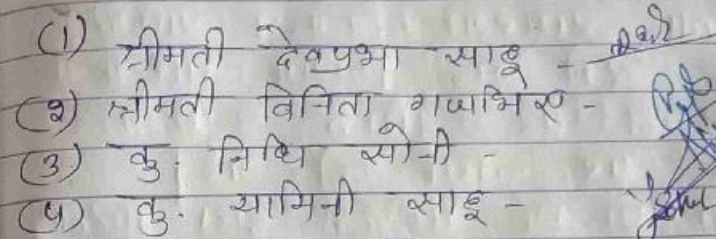 (1) श्रीमती देवप्रभा साहू -
(२) श्रीमती विनिता गजभिए -
(3) कु. निधि सोनी -
(५) कु. यामिनी साहू -